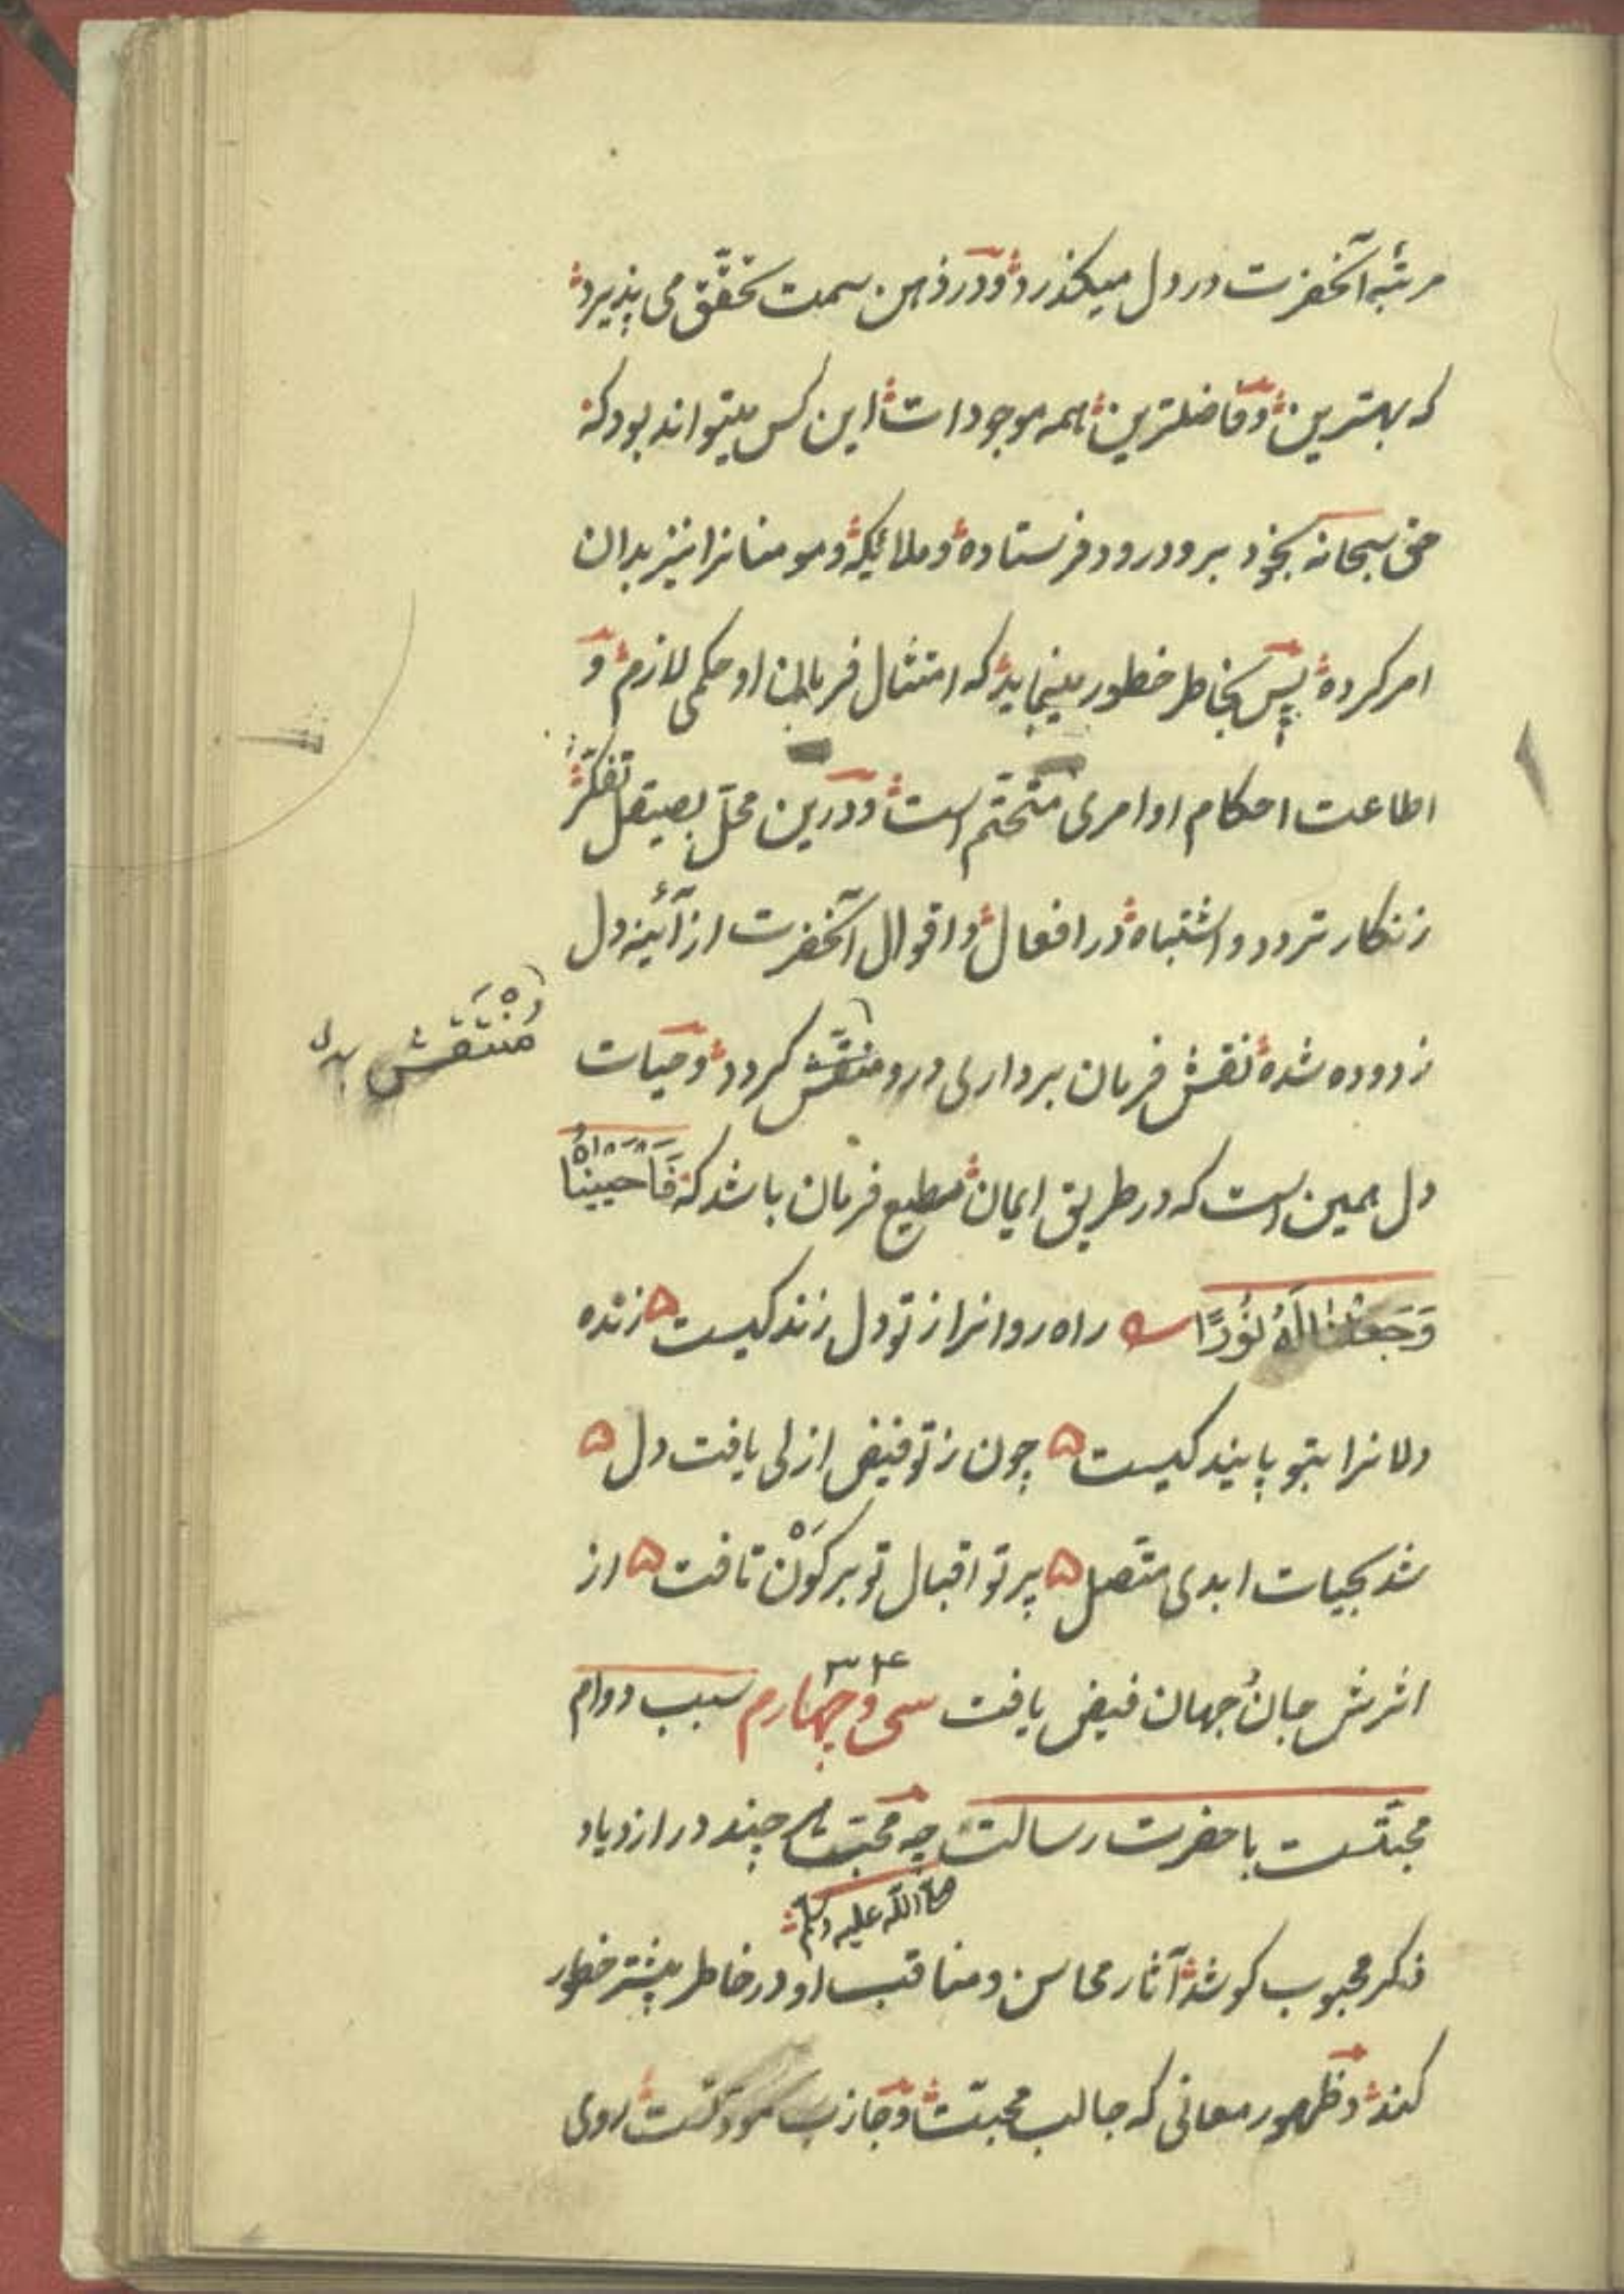 مرتبهٔ آنحضرت در دل میکذرد و در ذهن سمت تحقّق می پذیرد
که بهترین و فاضلترین همه موجودات این کس میتواند بود که
حق سبحانه بخود برو درود فرستاده و ملائیکه و مومنانرا نیز بدان
امر کرده پس بخاطر خطور مینماید که امتثال فرمان او حکمی لازم و
اطاعت احکام او امری متحتّم است و درین محلّ بصیقل تفکّر
زنکار تردد و اشتباه در افعال و اقوال آنحضرت از آئینه دل
زدوده شده نقش فرمان برداری درو منتقش کردد و حیات
مُنْتَقَش
دل همین است که در طریق ایمان مطیع فرمان باشد که فَاَحْیَیْنَاهُ
وَجَعَلْنَا لَهُ نُورًا راه روانرا ز تو دل زندکیست زنده
دلانرا بتو پایندکیست چون ز تو فیض ازلی یافت دل
شد بحیات ابدی متّصل پرتو اقبال تو بر کَوْن تافت از
اثرش جان جهان فیض یافت سی و چهارم سبب دوام
۳۴
محبتست با حضرت رسالت چه محبّت هر چند در ازدیاد
صلی الله علیه وسلم
ذکر محبوب کوشد آثار محاسن و مناقب او در خاطر بیشتر خطور
کند و ظهور معانی که جالب محبّت و جاذب مودّتست روی